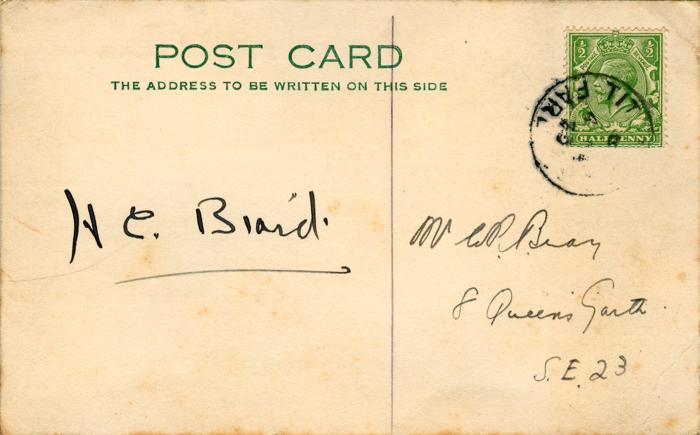 POST CARD
THE ADDRESS TO BE WRITTEN ON THIS SIDE
½ ½
HALFPENNY
H C. Biard.
Mr W.P. Bray
8 Queen's Garth.
S.E. 23